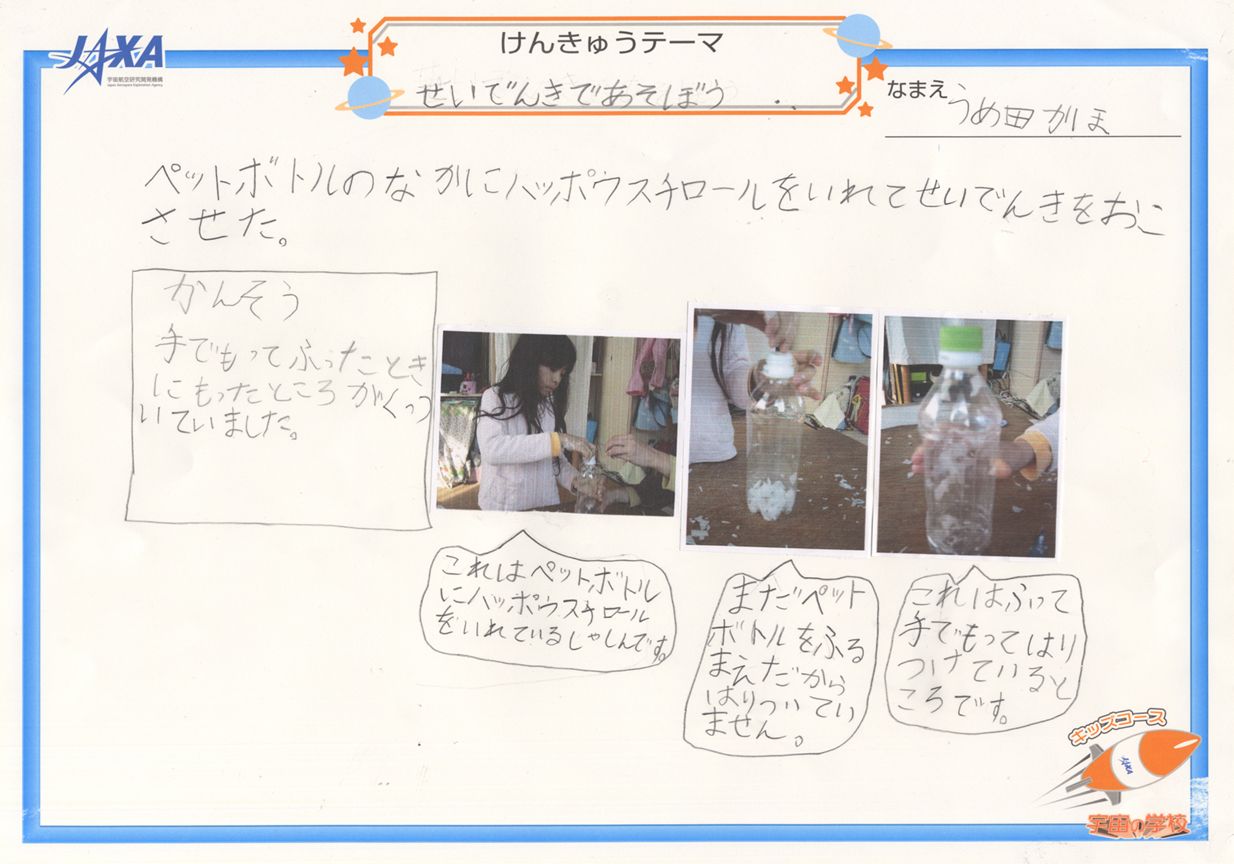 JAXA
宇宙航空研究開発機構
Japan Aerospace Exploration Agency
けんきゅうテーマ
せいでんきであそぼう
なまえ うめ田 かほ
ペットボトルのなかにハッポウスチロールをいれてせいでんきをおこ
させた。
かんそう
手でもってふったことき
にもったところがくっつ
いていました。
これはペットボトル
にハッポウスチロール
をいれているしゃしんです。
まだペット
ボトルをふる
まえだから
はりついてい
ません。
これはふって
手でもってはり
つけていると
ころです。
キッズコース
JAXA
宇宙の学校